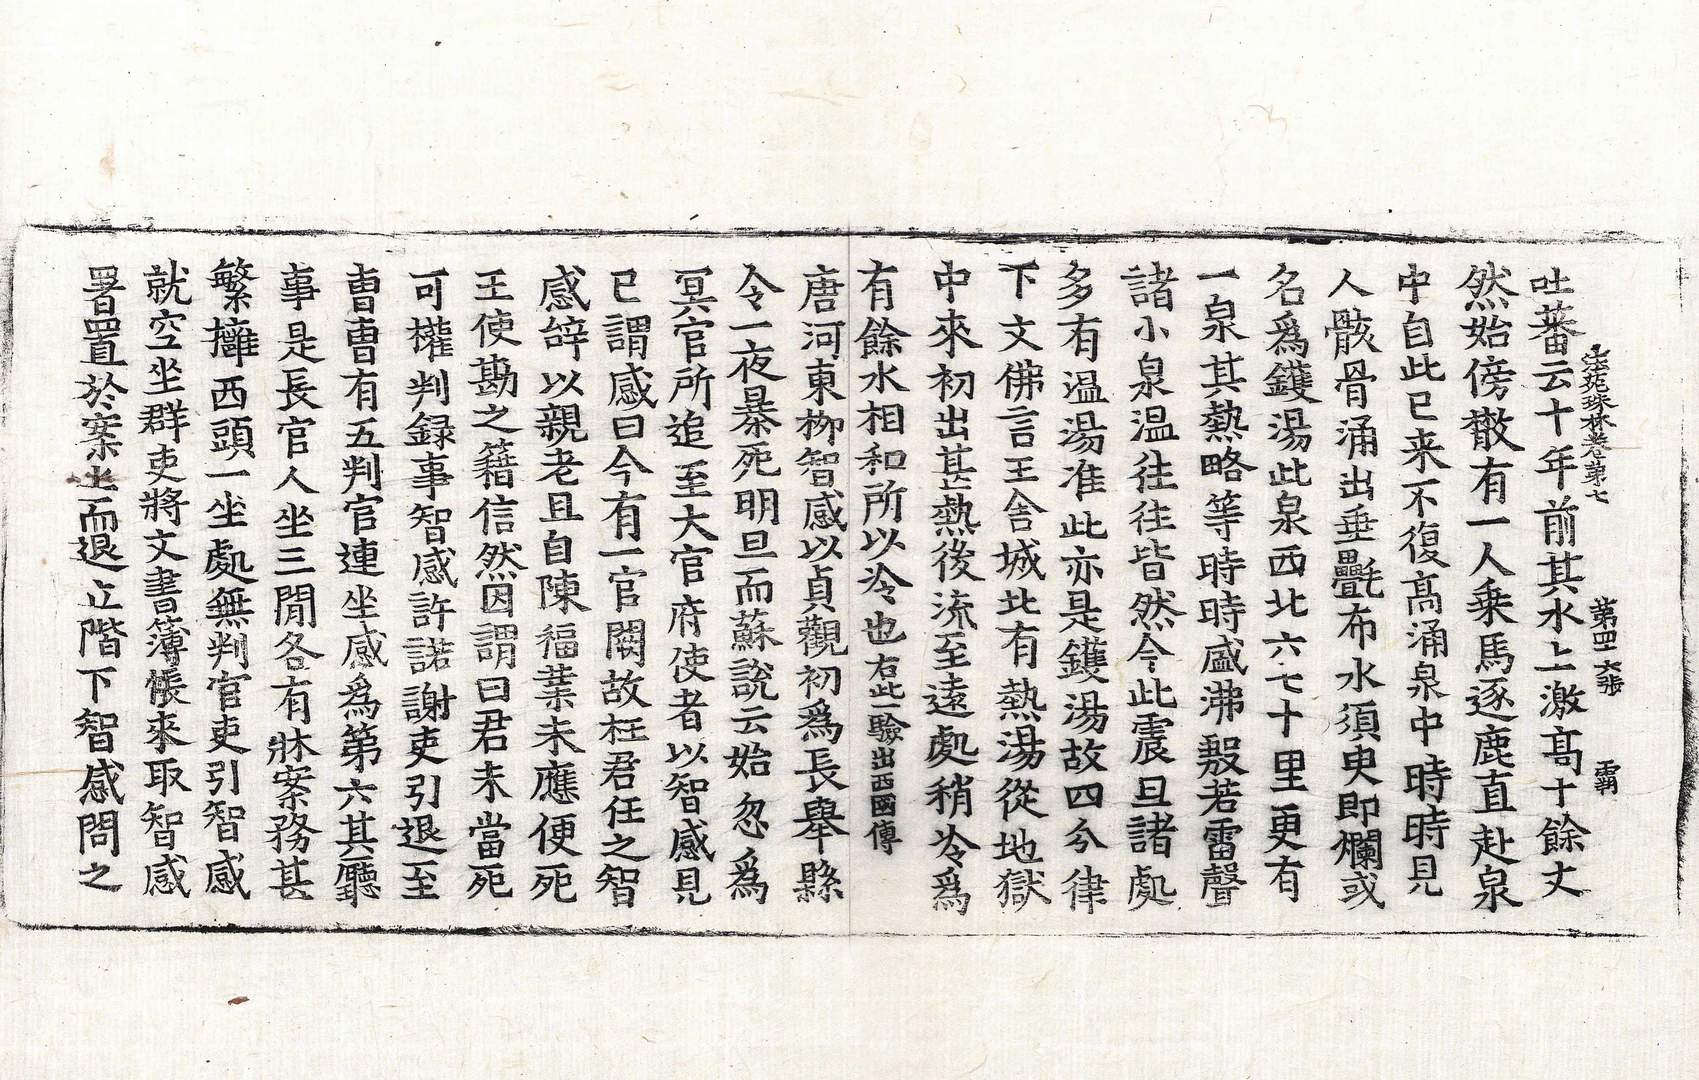 法苑珠林卷第七 第四十六張 霸
吐蕃云十年前其水上激高十餘丈
然始傍散有一人乗馬逐鹿直赴泉
中自此已来不復髙涌泉中時時見
人骸骨涌出垂㲲布水須臾即爛或
名爲鑊湯此泉西北六七十里更有
一泉其熱略等時時盛沸殷若雷聲
諸小泉温往往皆然今此震旦諸處
多有温湯准此亦是鑊湯故四分律
下文佛言王舍城北有熱湯從地獄
中來初出甚熱後流至遠處稍冷爲
有餘水相和所以冷也右此一驗出西國傳
唐河東柳智感以貞觀初爲長舉縣
令一夜暴死明旦而蘇說云始忽爲
冥官所追至大官府使者以智感見
已謂感曰今有一官闕故枉君任之智
感辝以親老且自陳福業未應便死
王使勘之籍信然因謂曰君未當死
可權判録事智感許諾謝吏引退至
曹曹有五判官連坐感爲第六其廳
事是長官人坐三閒各有牀案務甚
繁擁西頭一坐處無判官吏引智感
就空坐群吏將文書簿帳來取智感
署置於案上而退立階下智感問之